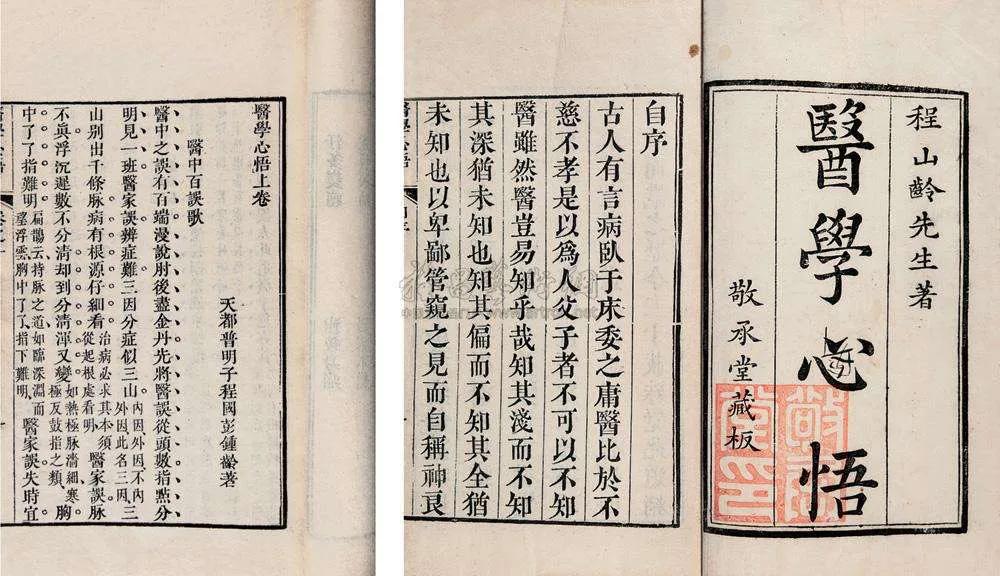 程山齡先生著
醫學心悟
敬承堂藏板
自序
古人有言病臥于床委之庸醫比於不
慈不孝是以爲人父子者不可以不知
醫雖然醫豈易知乎哉知其淺而不知
其深猶未知也知其偏而不知其全猶
未知也以卑鄙管窺之見而自稱神良
醫學心悟上卷
醫中百誤歌
天都普明子程國彭鍾齡著
醫中之誤有百端漫說肘後盡金丹先將醫誤從頭數指點分
明見一班醫家誤辨症難三因分症似三山內因外因不內外因此名三因、三
山別出千條脉病有根源仔細看治病必求其本須從起根處看明醫家誤脉
不眞浮沉遲數不分清却到分清渾又變如熱極脉濇細寒極反鼓指之類、胸
中了了指難明扁鵲云持脉之道如臨深淵而望浮雲胸中了了、指下難明、醫家誤失時宜